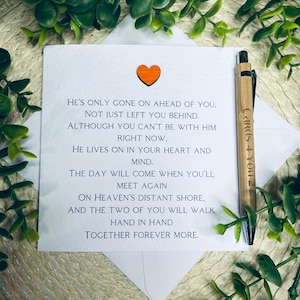 He's only gone on ahead of you,
Not just left you behind.
Although you can't be with him
right now,
He lives on in your heart and
mind.
The day will come when you'll
meet again
On Heaven's distant shore,
And the two of you will walk
hand in hand
Together forever more.